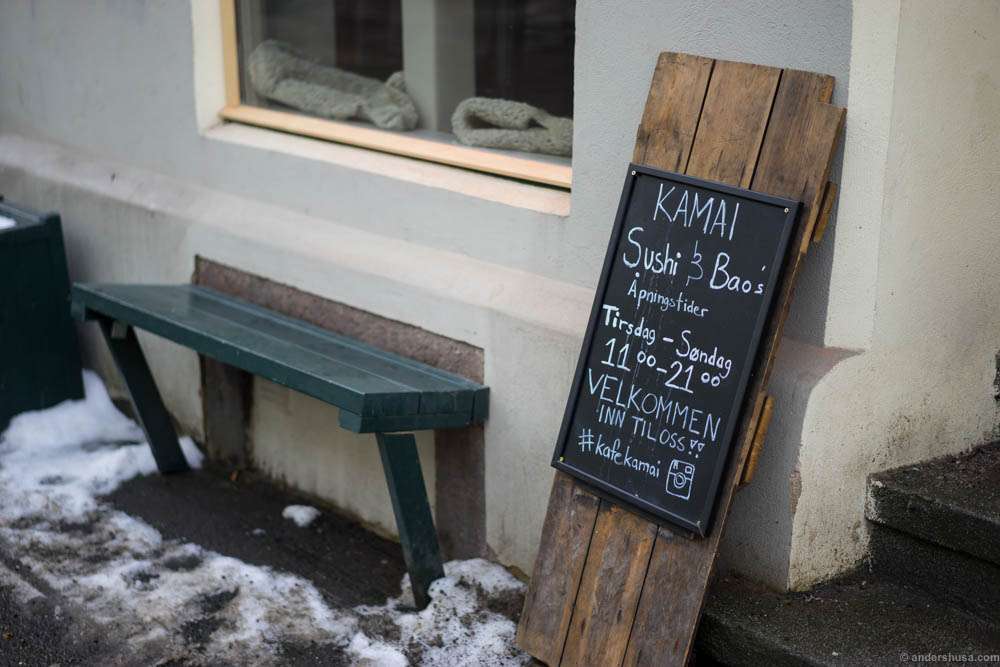 KAMAI
Sushi & Bao's
Åpningstider
Tirsdag - Søndag
11 00 - 21 00
VELKOMMEN
INN TIL OSS!!
#kafekamai
© andershusa.com